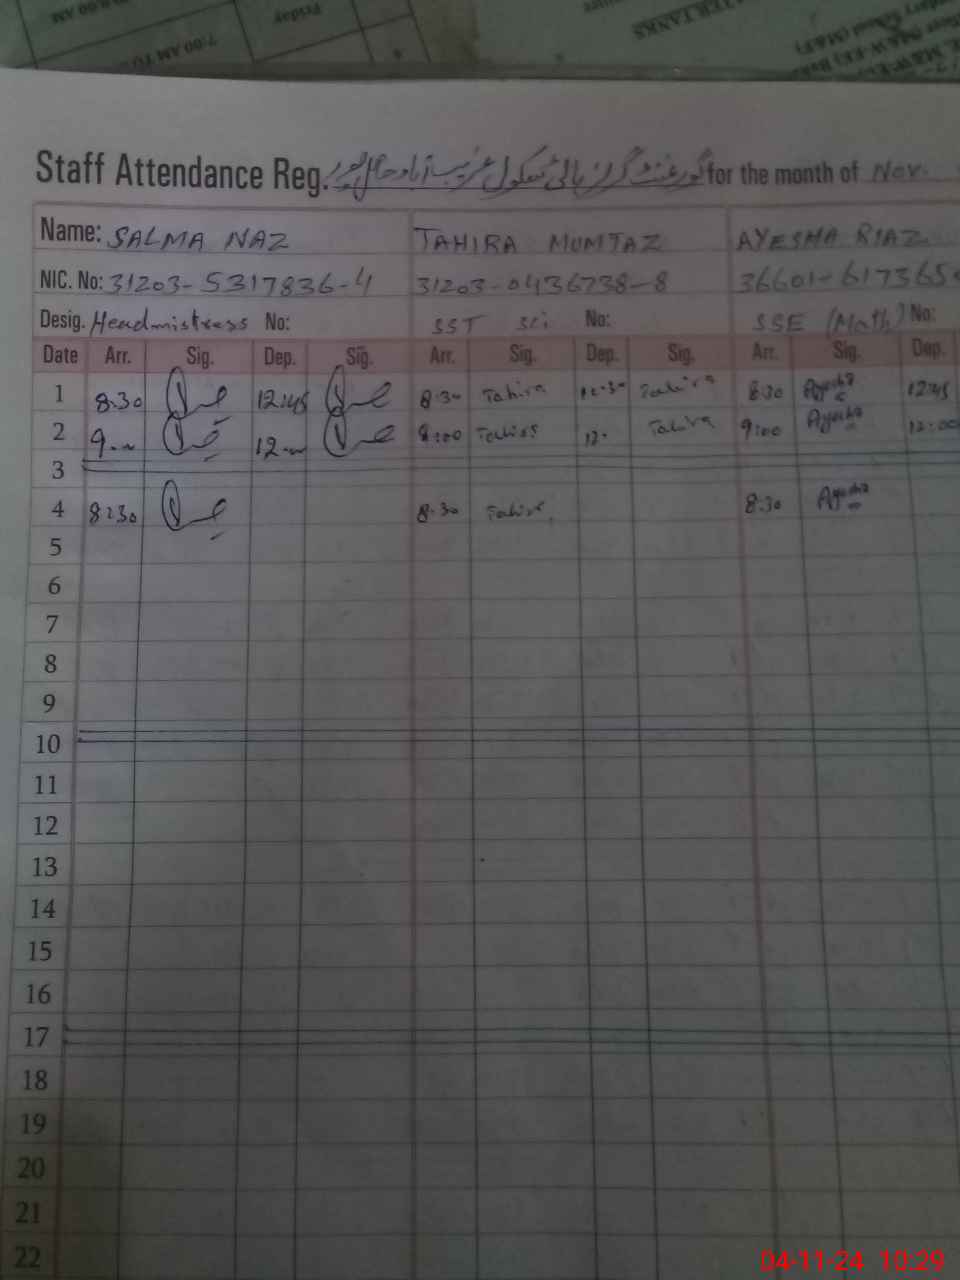 8:00 AM
Friday
7:00 AM TO
TER TANKS
Staff Attendance Reg. گورنمنٹ گرلز ہائی سکول غریب آباد حاصلپور for the month of Nov.
Name: SALMA NAZ TAHIRA MUMTAZ AYESHA RIAZ
NIC. No: 31203-5317836-4 31203-0436738-8 36601-617365
Desig. Headmistress No: SST Sci No: SSE (Math) No:
Date Arr. Sig. Dep. Sig. Arr. Sig. Dep. Sig. Arr. Sig. Dep.
1 8:30 12:45 8:30 Tahira 12:30 Tahira 8:30 Ayesha 12:45
2 9:00 12:00 9:00 Tahira 12: Tahira 9:00 Ayesha 12:00
3
4 8:30 8:30 Tahira 8:30 Ayesha
5
6
7
8
9
10
11
12
13
14
15
16
17
18
19
20
21
22
04-11-24 10:29